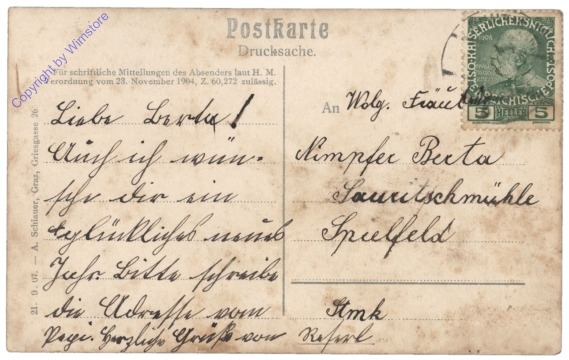 Postkarte
Drucksache.
Für schriftliche Mitteilungen des Absenders laut H. M.
Verordnung vom 23. November 1904, Z. 60,272 zulässig.
Liebe Berta!
Auch ich wün-
sche dir ein
glückliches neues
Jahr. Bitte schreibe
die Adresse vom
Pepi. Herzliche Grüße von Reserl
An Wolg. Fräul
Nimpfer Berta
Sauritschmühle
Spielfeld
Stmk
KAISERLICHEKÖNIGLICHE
ÖSTERREICHISCHE POST
5 HELLER 5
21. 9. 07. — A. Schlauer, Graz, Griesgasse 26
Copyright by Wimstore